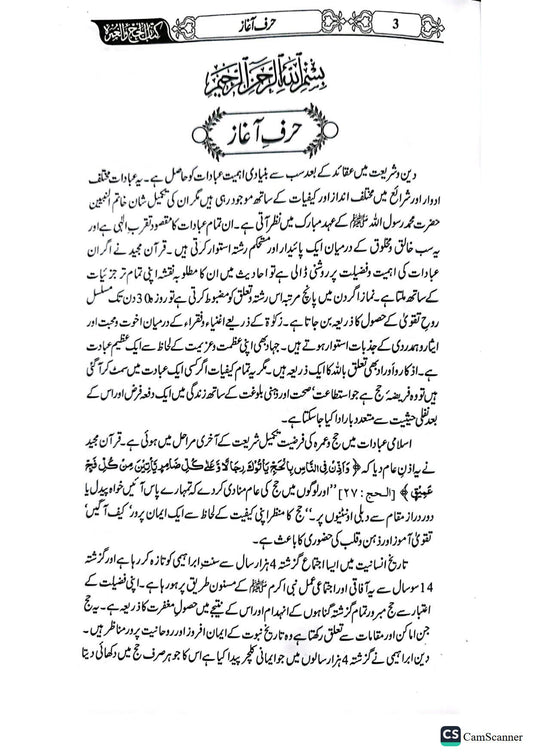 3
حرف آغاز
کتاب الحج والعمرہ
بسم الله الرحمن الرحیم
حرفِ آغاز
دین و شریعت میں عقائد کے بعد سب سے بنیادی اہمیت عبادات کو حاصل ہے۔ یہ عبادات مختلف
ادوار اور شرائع میں مختلف انداز اور کیفیات کے ساتھ موجود رہی ہیں مگر ان کی تکمیل شان خاتم النبیین
حضرت محمد رسول اللہ ﷺ کے عہد مبارک میں نظر آتی ہے۔ ان تمام عبادات کا مقصود تقرب الٰہی ہے اور
یہ سب خالق و مخلوق کے درمیان ایک پائیدار اور مستحکم رشتہ استوار کرتی ہیں۔ قرآن مجید نے اگر ان
عبادات کی اہمیت و فضیلت پر روشنی ڈالی ہے تو احادیث میں ان کا مطلوبہ نقشہ اپنی تمام تر جزئیات
کے ساتھ ملتا ہے۔ نماز اگر دن میں پانچ مرتبہ اس رشتہ و تعلق کو مضبوط کرتی ہے تو روزہ 30 دن تک مسلسل
روح تقویٰ کے حصول کا ذریعہ بن جاتا ہے۔ زکوٰۃ کے ذریعے اغنیاء و فقراء کے درمیان اخوت و محبت اور
ایثار و ہمدردی کے جذبات استوار ہوتے ہیں۔ جہاد بھی اپنی عظمت و عزیمت کے لحاظ سے ایک عظیم عبادت
ہے۔ اذکار و اوراد بھی تعلق باللہ کا ایک ذریعہ ہیں۔ مگر یہ تمام کیفیات اگر کسی ایک عبادت میں سمٹ کر آ گئی
ہیں تو وہ فریضۂ حج ہے جو استطاعت‘ صحت اور ذہنی بلوغت کے ساتھ زندگی میں ایک دفعہ فرض اور اس کے
بعد نفلی حیثیت سے متعدد بار ادا کیا جا سکتا ہے۔
اسلامی عبادات میں حج و عمرہ کی فرضیت تکمیل شریعت کے آخری مراحل میں ہوئی ہے۔ قرآن مجید
نے یہ اذنِ عام دیا کہ ﴿ وَاَذِّنْ فِى النَّاسِ بِالْحَجِّ يَاْتُوْكَ رِجَالًا وَّعَلٰى كُلِّ ضَامِرٍ يَّاْتِيْنَ مِنْ كُلِّ فَجٍّ
عَمِيْقٍ ﴾ [الحج : ۲۷] ’’اور لوگوں میں حج کی عام منادی کر دے کہ تمہارے پاس آئیں خواہ پیدل یا
دور دراز مقام سے دبلی اونٹنیوں پر۔‘‘ حج کا منظر اپنی کیفیت کے لحاظ سے ایک ایمان پرور‘ کیف آگیں‘
تقویٰ آموز اور ذہن و قلب کی حضوری کا باعث ہے۔
تاریخ انسانیت میں ایسا اجتماع گزشتہ 4 ہزار سال سے سنت ابراہیمی کو تازہ کر رہا ہے اور گزشتہ
14 سو سال سے یہ آفاقی اور اجتماعی عمل نبی اکرم ﷺ کے مسنون طریق پر ہو رہا ہے۔ اپنی فضیلت کے
اعتبار سے حج مبرور تمام گزشتہ گناہوں کے انہدام اور اس کے نتیجے میں حصول مغفرت کا ذریعہ ہے۔ یہ حج
جن اماکن اور مقامات سے تعلق رکھتا ہے وہ تاریخ نبوت کے ایمان افروز اور روحانیت پرور مناظر ہیں۔
دین ابراہیمی نے گزشتہ 4 ہزار سالوں میں جو ایمانی کلچر پیدا کیا ہے اس کا جوہر صرف حج میں دکھائی دیتا
CS CamScanner